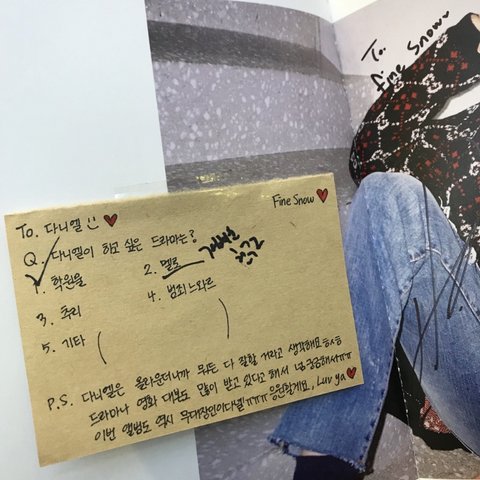 To.
fine snow~
Fine Snow ♥
To. 다니엘 ♥
Q. 다니엘이 하고 싶은 드라마는?
1. 학원물
2. 멜로
3. 추리
4. 범죄느와르
5. 기타 ( )
P.S. 다니엘은 올라운더니까 뭐든 다 잘할 거라고 생각해요 ㅎㅅㅎ
드라마나 영화 대본도 많이 받고 있다고 해서 넘 궁금해서ㅠㅠ
이번 앨범도 역시 무대장인이다녤ㅠㅠㅠ 응원할게요, Luv ya ♥